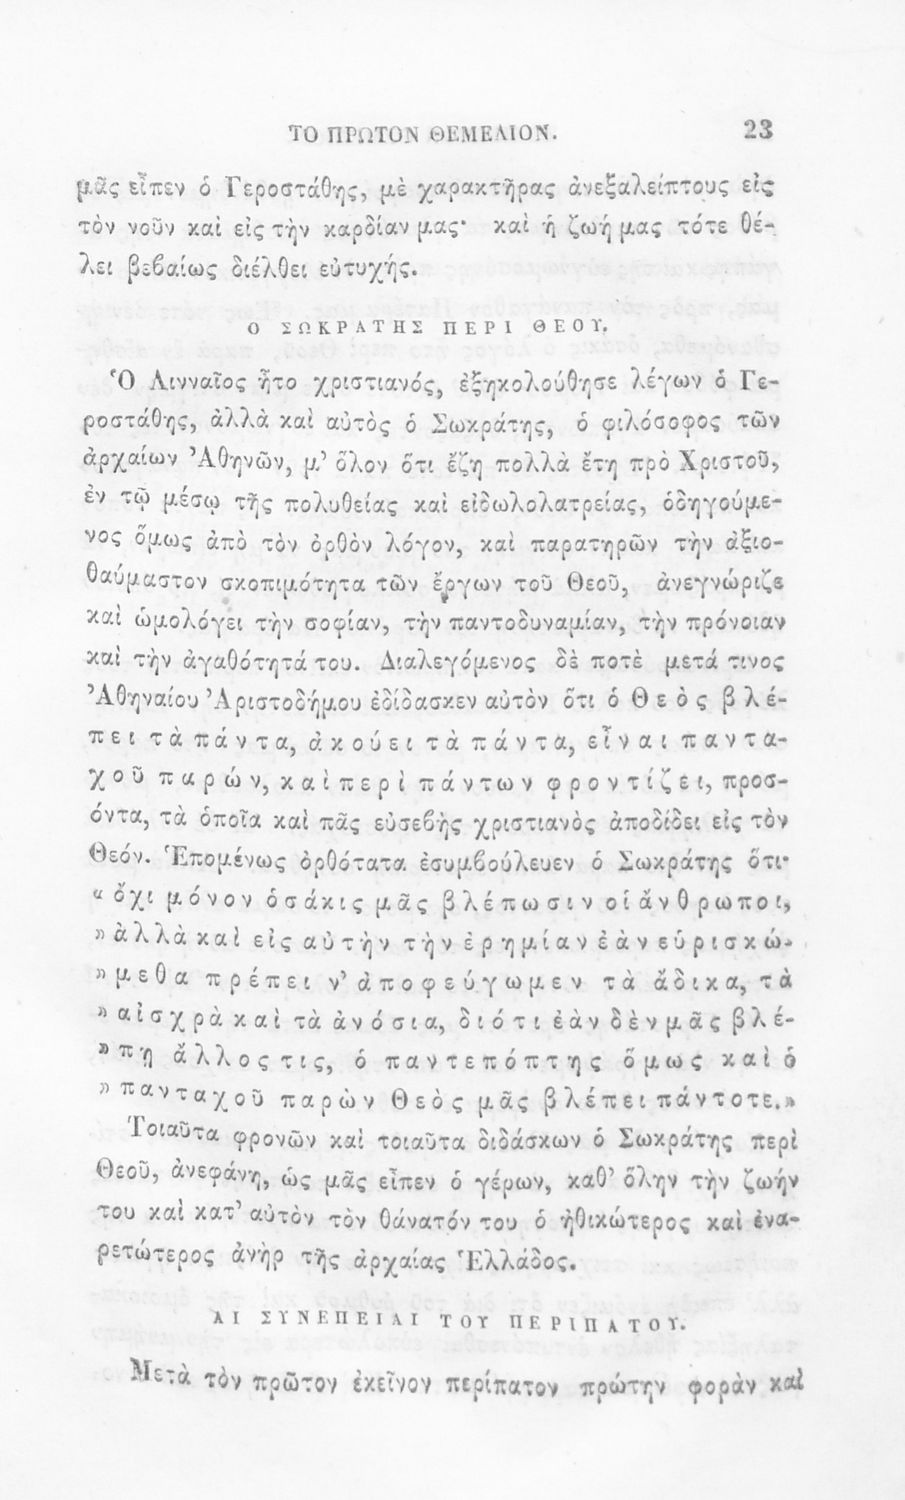 ΤΟ ΠΡΩΤΟΝ ΘΕΜΕΛΙΟΝ. 23
μᾶς εἶπεν ὁ Γεροστάθης, μὲ χαρακτῆρας ἀνεξαλείπτους εἰς
τὸν νοῦν καὶ εἰς τὴν καρδίαν μας· καὶ ἡ ζωή μας τότε θέ-
λει βεβαίως διέλθει εὐτυχής.
Ο ΣΩΚΡΑΤΗΣ ΠΕΡΙ ΘΕΟΥ.
Ὁ Λινναῖος ἦτο χριστιανός, ἐξηκολούθησε λέγων ὁ Γε-
ροστάθης, ἀλλὰ καὶ αὐτὸς ὁ Σωκράτης, ὁ φιλόσοφος τῶν
ἀρχαίων Ἀθηνῶν, μ' ὅλον ὅτι ἔζη πολλὰ ἔτη πρὸ Χριστοῦ,
ἐν τῷ μέσῳ τῆς πολυθείας καὶ εἰδωλολατρείας, ὁδηγούμε-
νος ὅμως ἀπὸ τὸν ὀρθὸν λόγον, καὶ παρατηρῶν τὴν ἀξιο-
θαύμαστον σκοπιμότητα τῶν ἔργων τοῦ Θεοῦ, ἀνεγνώριζε
καὶ ὡμολόγει τὴν σοφίαν, τὴν παντοδυναμίαν, τὴν πρόνοιαν
καὶ τὴν ἀγαθότητά του. Διαλεγόμενος δὲ ποτὲ μετά τινος
Ἀθηναίου Ἀριστοδήμου ἐδίδασκεν αὐτὸν ὅτι ὁ Θεὸς βλέ-
πει τὰ πάντα, ἀκούει τὰ πάντα, εἶναι παντα-
χοῦ παρών, καὶ περὶ πάντων φροντίζει, προσ-
όντα, τὰ ὁποῖα καὶ πᾶς εὐσεβὴς χριστιανὸς ἀποδίδει εἰς τὸν
Θεόν. Ἑπομένως ὀρθότατα ἐσυμβούλευεν ὁ Σωκράτης ὅτι·
« ὄχι μόνον ὁσάκις μᾶς βλέπωσιν οἱ ἄνθρωποι,
» ἀλλὰ καὶ εἰς αὐτὴν τὴν ἐρημίαν ἐὰν εὑρισκώ-
» μεθα πρέπει ν' ἀποφεύγωμεν τὰ ἄδικα, τὰ
» αἰσχρὰ καὶ τὰ ἀνόσια, διότι ἐὰν δὲν μᾶς βλέ-
» πῃ ἄλλος τις, ὁ παντεπόπτης ὅμως καὶ ὁ
» πανταχοῦ παρὼν Θεὸς μᾶς βλέπει πάντοτε.»
Τοιαῦτα φρονῶν καὶ τοιαῦτα διδάσκων ὁ Σωκράτης περὶ
Θεοῦ, ἀνεφάνη, ὡς μᾶς εἶπεν ὁ γέρων, καθ' ὅλην τὴν ζωήν
του καὶ κατ' αὐτὸν τὸν θάνατόν του ὁ ἠθικώτερος καὶ ἐνα-
ρετώτερος ἀνὴρ τῆς ἀρχαίας Ἑλλάδος.
ΑΙ ΣΥΝΕΠΕΙΑΙ ΤΟΥ ΠΕΡΙΠΑΤΟΥ.
Μετὰ τὸν πρῶτον ἐκεῖνον περίπατον πρώτην φορὰν καὶ